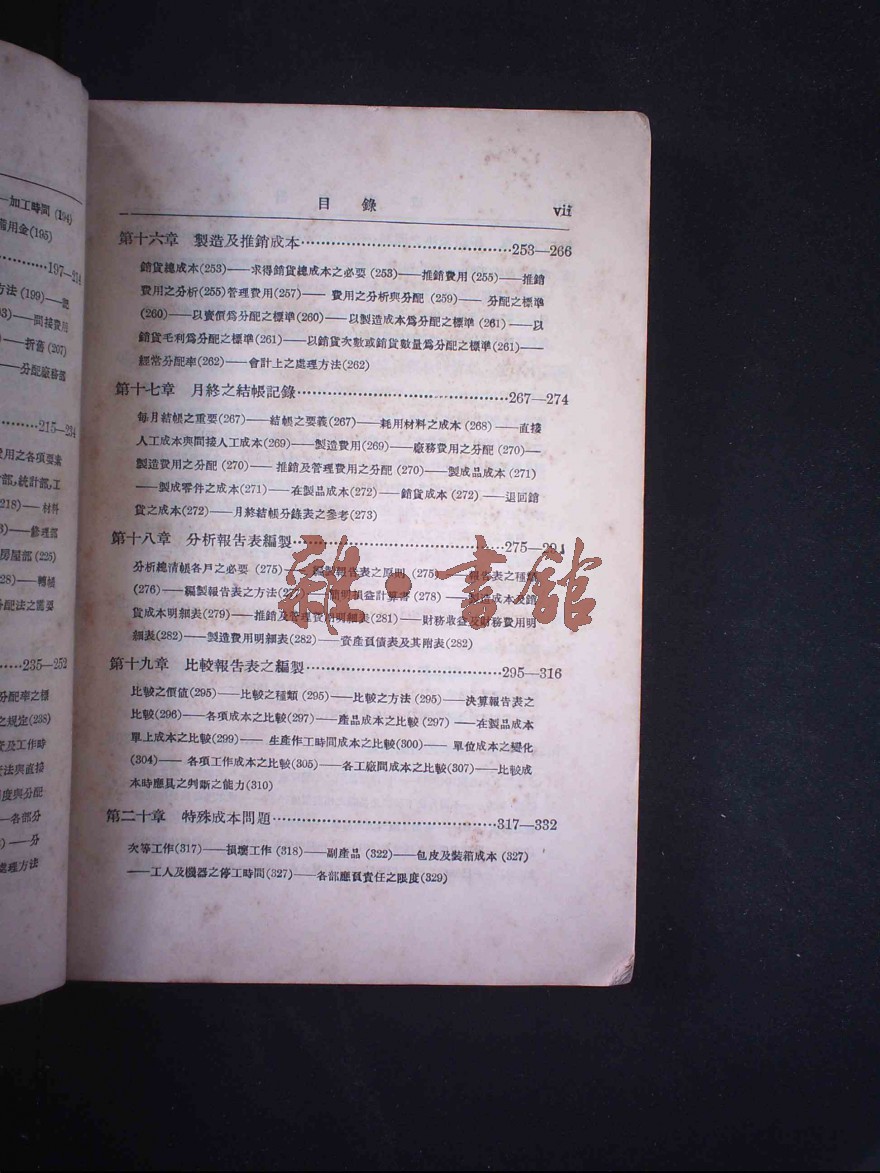 加工時間 (194)
用金(195)
197—214
方法 (199)——
間接費用
折舊 (207)
分配廠務部
215—234
費用之各項要素
部,統計部,工
218)——材料
修理部
房屋部 (225)
228)——轉帳
分配法之需要
235—252
分配率之標
之規定(238)
及工作時
法與直接
度與分配
各部分
分
處理方法
目 錄 vii
第十六章 製造及推銷成本 253—266
銷貨總成本(253)——求得銷貨總成本之必要 (253)——推銷費用 (255)——推銷
費用之分析(255)管理費用(257)—— 費用之分析與分配 (259)—— 分配之標準
(260)——以賣價爲分配之標準(260)——以製造成本爲分配之標準 (261)——以
銷貨毛利爲分配之標準(261)——以銷貨次數或銷貨數量爲分配之標準(261)——
經常分配率(262)——會計上之處理方法(262)
第十七章 月終之結帳記錄 267—274
每月結帳之重要(267)——結帳之要義(267)——耗用材料之成本 (268)——直接
人工成本與間接人工成本(269)——製造費用(269)——廠務費用之分配 (270)—
製造費用之分配 (270)—— 推銷及管理費用之分配 (270)——製成品成本 (271)
——製成零件之成本(271)——在製品成本(272)——銷貨成本 (272)——退回銷
貨之成本(272)——月終結帳分錄表之參考(273)
第十八章 分析報告表編製 275—294
分析總清帳各戶之必要 (275)——編製報告表之原則 (275)——報告表之種類
(276)——編製報告表之方法(277)——簡明損益計算書 (278)——製造成本及銷
貨成本明細表(279)——推銷及管理費用明細表(281)——財務收益及財務費用明
細表(282)——製造費用明細表(282)——資產負債表及其附表(282)
第十九章 比較報告表之編製 295—316
比較之價值(295)——比較之種類 (295)——比較之方法 (295)——決算報告表之
比較(296)——各項成本之比較(297)——產品成本之比較 (297)——在製品成本
單上成本之比較(299)—— 生產作工時間成本之比較(300)—— 單位成本之變化
(304)—— 各項工作成本之比較(305)——各工廠間成本之比較(307)——比較成
本時應具之判斷之能力(310)
第二十章 特殊成本問題 317—332
次等工作(317)——損壞工作 (318)——副產品 (322)——包皮及裝箱成本 (327)
——工人及機器之停工時間(327)——各部應負責任之限度(329)
雜·書館